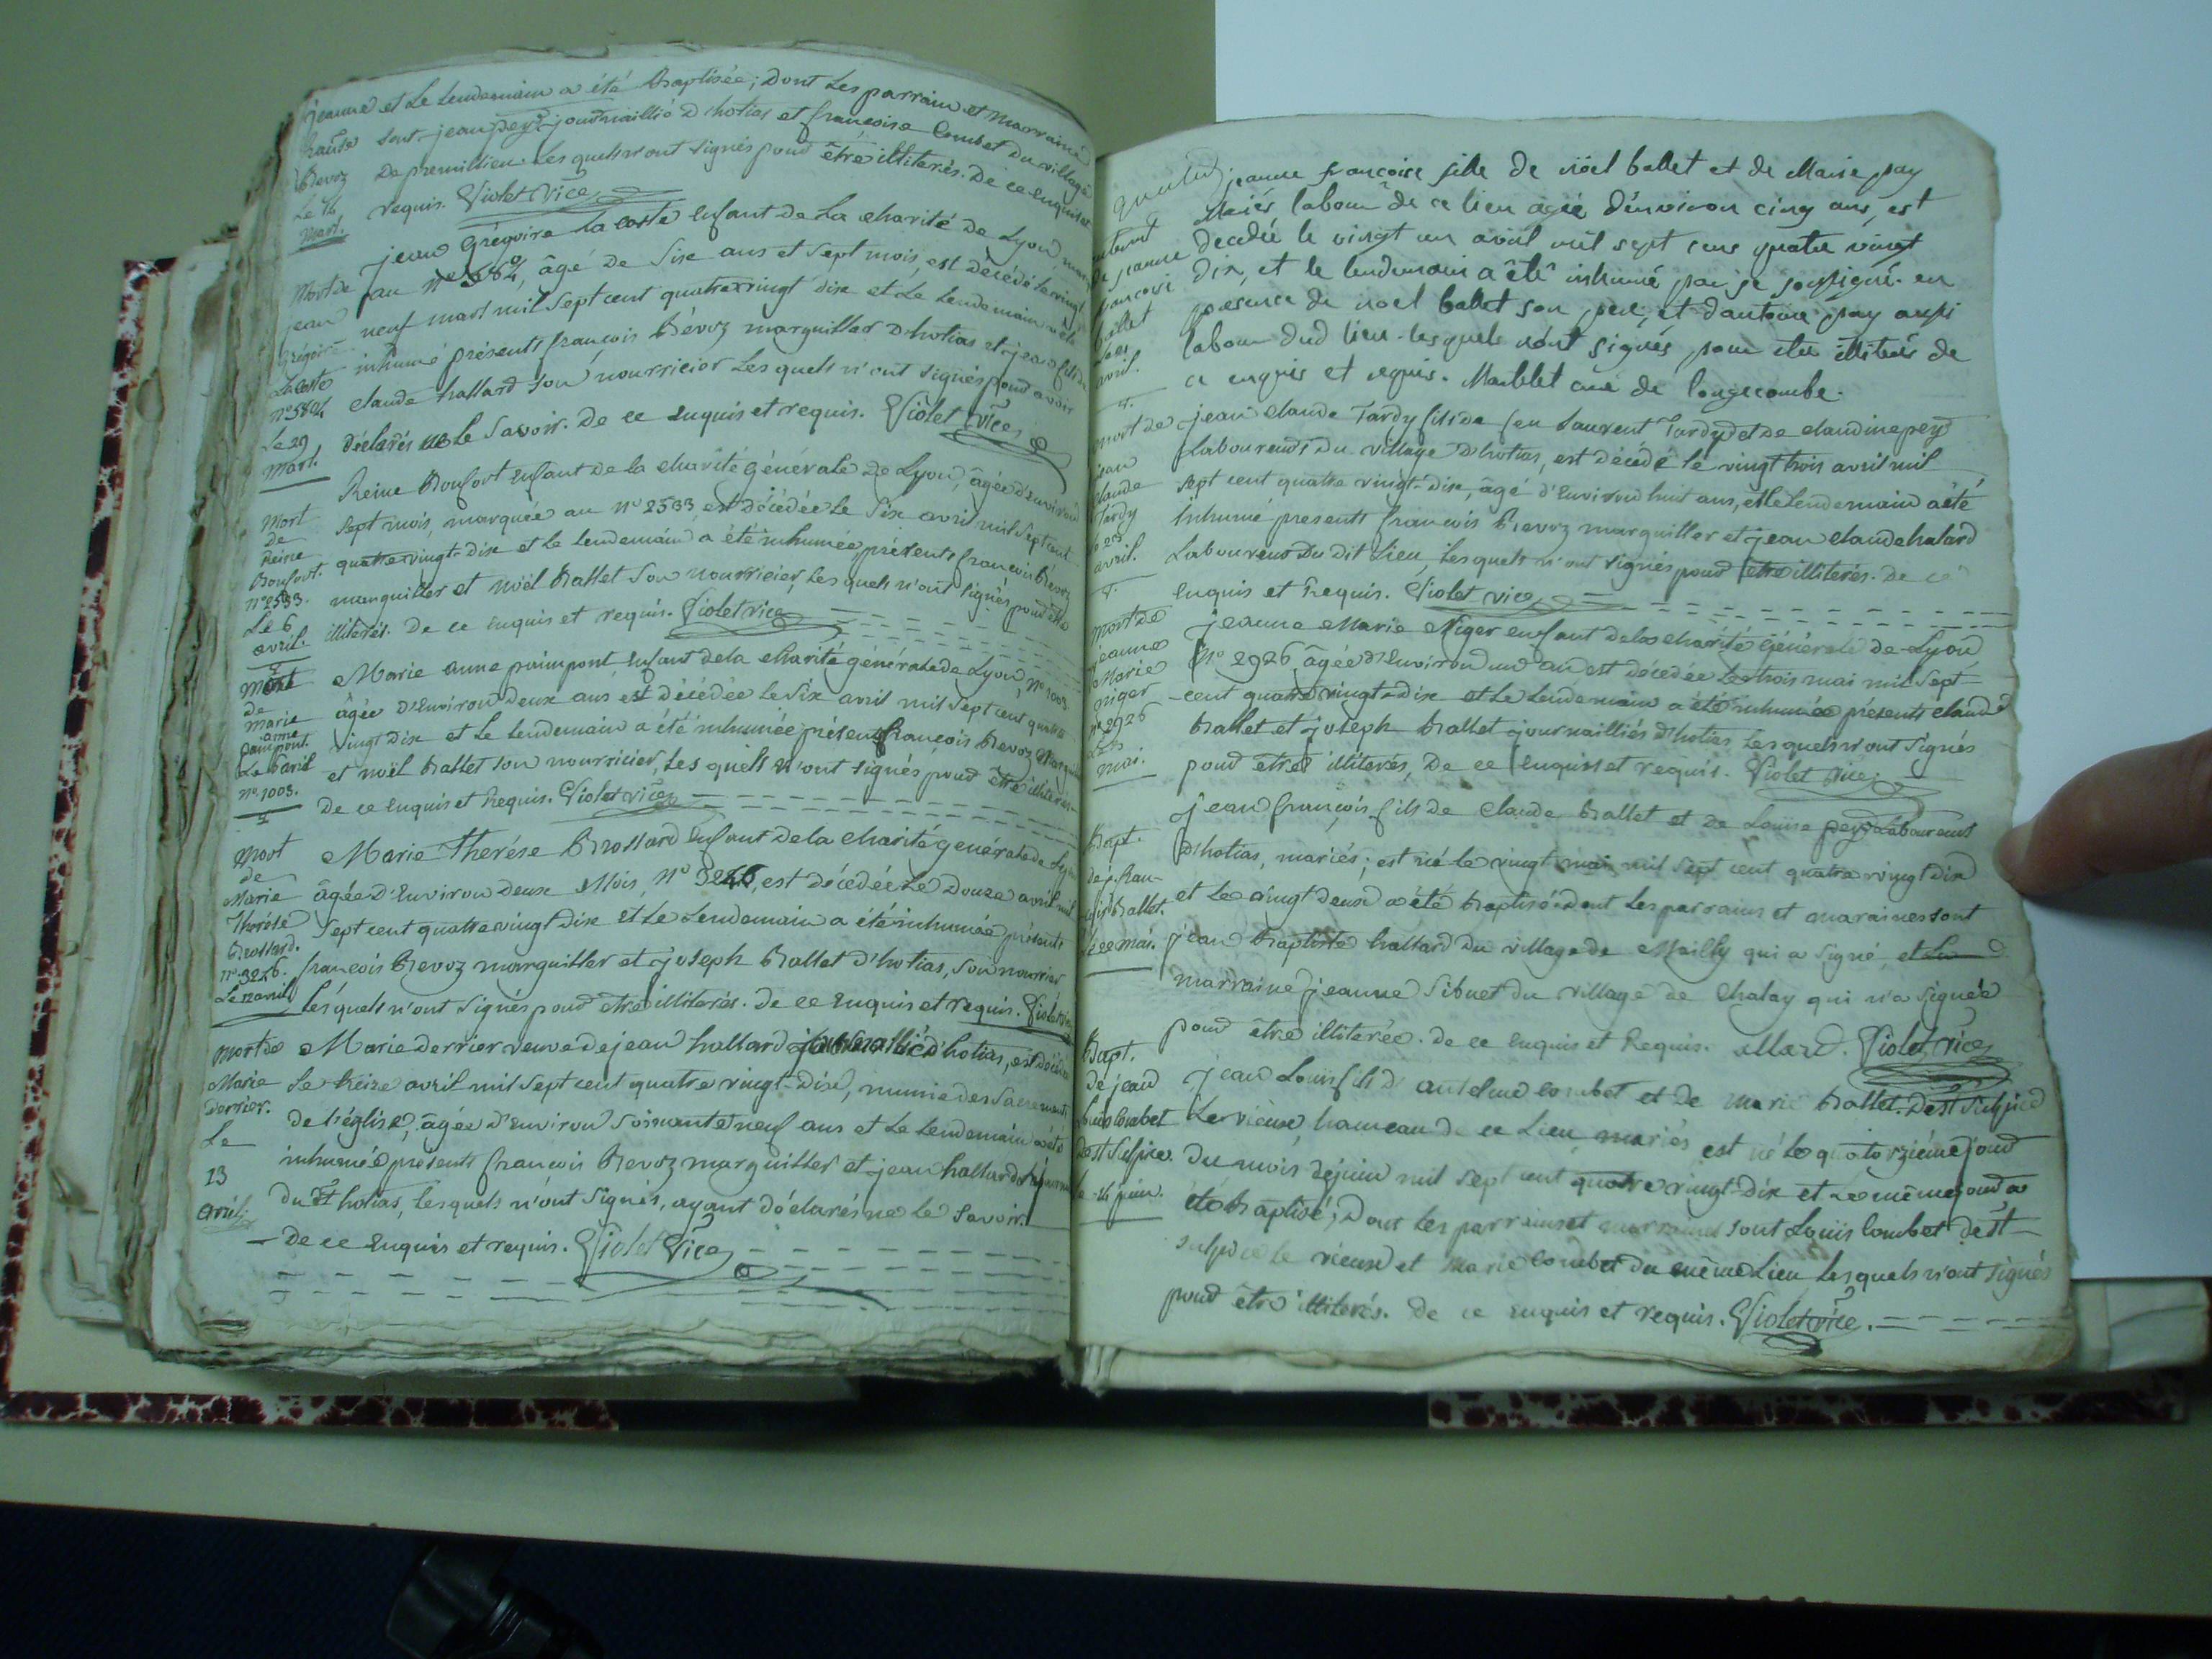 jeanne et Le Lendemain a été Baptisée; Dont Les parrain et Marraine
sont jean pey journaillié D'hotias et françoise Combet du village
De premillieu Les quels n'ont signés pour être illiterés. De ce Enquis et
requis. Violet Vice
Bevoz
Le 14
Mars.
jean Grégoire La coste Enfant de La charité de Lyon,
au N° 5804, âgé De Six ans et Sept mois, est décédé Le vingt
neuf mars mil Sept cent quatre vingt dix et Le Lendemain a été
inhumé présents françois Bévoz marguiller D'hotias et jean fils de
claude hallard Son nourricier Les quels n'ont signés pour avoir
déclarés ne Le Savoir. De ce Enquis et requis. Violet Vice
Mort de
jean
Grégoire
Lacoste
N° 5804
Le 29
Mars.
Reine Bonfort Enfant de la charité Générale de Lyon, âgée d'Environ
Sept mois, marquée au N° 2533 est décédée Le Six avril mil Sept cent
quatre vingt-dix et Le Lendemain a été inhumée, présents françois Bevoz
marguiller et noël Ballet Son nourricier, Les quels n'ont signés pour être
illiterés. De ce Enquis et requis. Violet vice
Mort
de
Reine
Bonfort.
N° 2533.
Le 6
avril.
Marie anne painpont Enfant de la charité générale de Lyon, N° 1003.
âgée D'Environ Deux ans, est décédée Le Six avril mil Sept cent quatre
vingt Dix et Le Lendemain a été inhumée présents françois Bevoz
et noël Ballet Son nourricier, Les quels n'ont signés pour être illiterés.
De ce Enquis et Requis. Violet vice
Mort
de
Marie
anne
painpont.
N° 1003.
Marie Therése Brossard Enfant de la charité générale de Lyon
âgée d'Environ Deux Mois, N° 3246, est décédée Le Douze avril mil
Sept cent quatre vingt Dix et Le Lendemain a été inhumée présents
françois Bevoz marguiller et joseph Ballet d'hotias, Son nourricier
Les quels n'ont signés pour être illiterés. de ce Enquis et requis. Violet
Mort
de
Marie
Thérése
Brossard.
N° 3246.
Le 12 avril
Marie Derrier veuve de jean hallard d'hotias, est décédée
Le treize avril mil Sept cent quatre vingt-Dix, munie des Sacrements
de L'église, âgée d'Environ Soixante neuf ans et Le Lendemain a été
inhumée présents françois Bevoz marguiller et jean hallard
du dt hotias, Lesquels n'ont Signés, ayant déclarés ne Le Savoir.
De ce Enquis et requis. Violet Vice
Mort de
Marie
Derrier.
Le
13
avril
jeanne françoise fille de noel ballet et de Marie pay
Mariés labour de ce lieu âgée d'environ cinq ans, est
decedée le vingt un avril mil sept cens quatre vingt
dix, et le lendemain a été inhumé par je soussigné en
presence de noel ballet son pere, et d'antoine pay aussi
labour dud lieu lesquels n'ont signés pour etre illiterés de
ce enquis et requis. curé de longecombe.
de jeanne
françoise
ballet
avril.
jean claude Tardy fils de feu Laurent Tardy et de claudine pey
Laboureurs du village D'hotias, est décédé le vingt trois avril mil
sept cent quatre vingt-dix, âgé d'Environ huit ans, et le Lendemain a été
Inhumé presents françois Bevoz marguiller et jean claude halard
Laboureur Du dit Lieu, Lesquels n'ont signés pour être illiterés. de ce
Enquis et Requis. Violet vice
mort de
jean
claude
Tardy
avril.
jeanne Marie Niger enfant de la charité Générale de Lyon
N° 2926 âgée d'Environ un an est décédée Le trois mai mil Sept
cent quatre vingt-dix et Le Lendemain a été inhumée présents claude
Ballet et joseph Ballet journailliés d'hotias Lesquels n'ont signés
pour être illiterés, De ce Enquis et requis. Violet Vice
mort de
jeanne
Marie
niger
N° 2926
mai.
jean françois fils de Claude Ballet et de Louise pey Laboureurs
D'hotias, mariés; est né le vingt mai mil Sept cent quatre vingt dix
et Le vingt deux a été Baptisé: dont Les parrains et maraines sont
jean Baptiste hallard Du village de Mailly qui a signé, et La
marraine jeanne Sibuet du village de Chalay qui n'a signée
pour être illiterée. de ce Enquis et Requis. allard. Violet Vice
Bapt.
de j. fran-
çois Ballet.
Le 22 mai.
jean Louis fils d'antelme combet et de marie Ballet. De St Sulpice
Le vieux, hameau de ce Lieu, mariés est né Le quatorzième jour
du mois de juin mil Sept cent quatre vingt-dix et Le même jour a
été Baptisé; Dont Les parrains et marraines sont Louis Combet de St
sulpice le vieux et Marie Combet du même Lieu Lesquels n'ont signés
pour être illiterés. De ce Enquis et requis. Violet vice.
Bapt.
de jean
Louis Combet
de St Sulpice.
Le 14 juin.